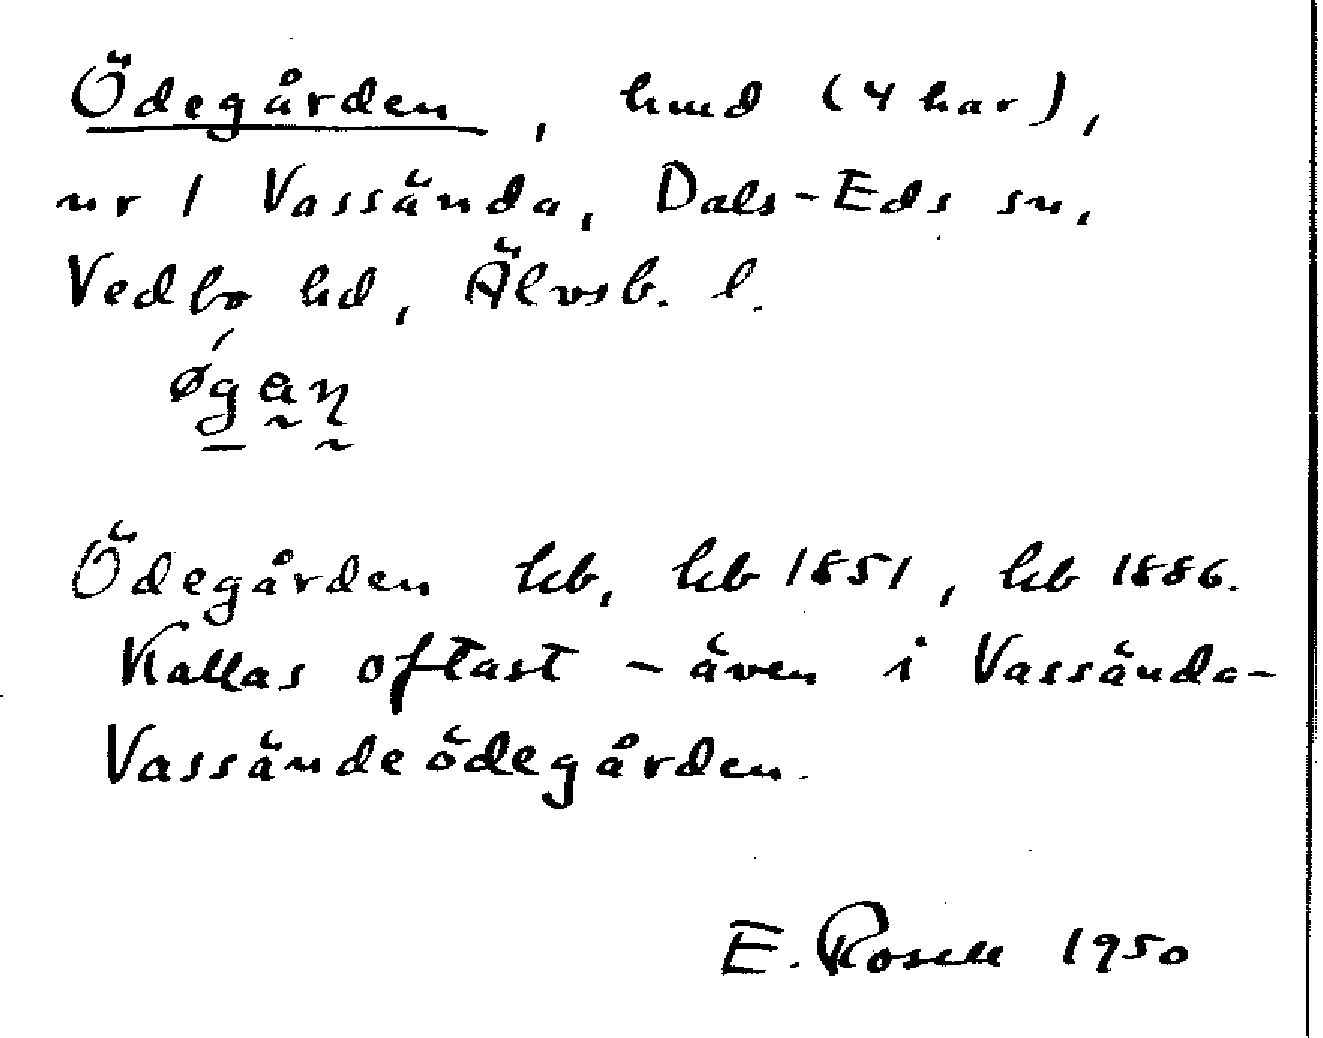 Ödegården, hmd (4 har),
nr 1 Vassända, Dals-Eds sn,
Vedbo hd, Älvsb. l.
Ödegården kb, kb 1851, kb 1886.
Kallas oftast – även i Vassända –
Vassändeödegården.
E. Rosell 1950